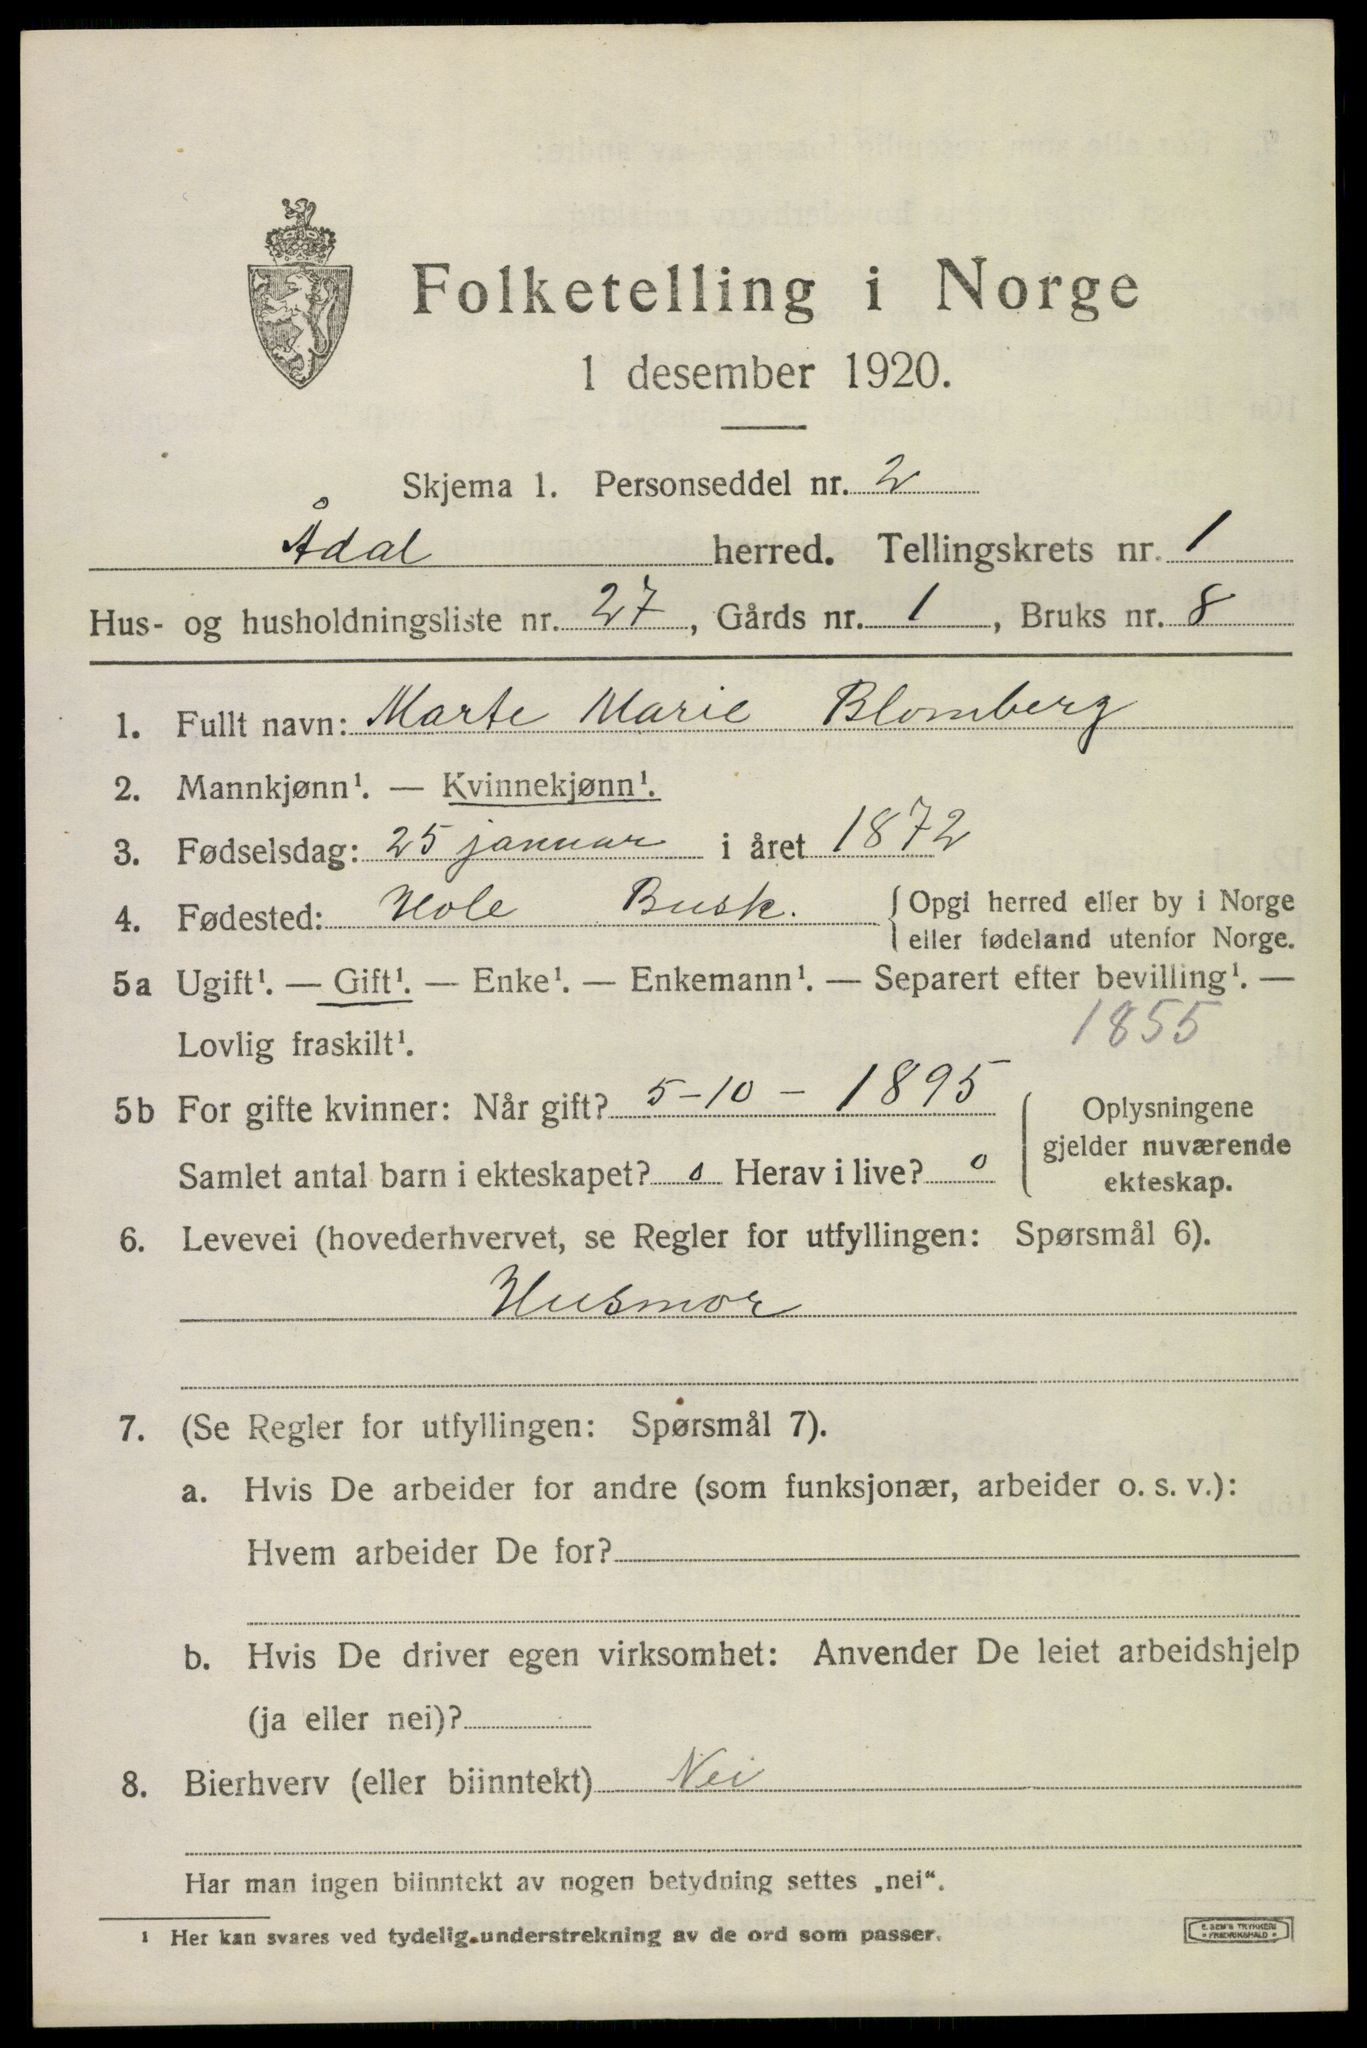 Folketelling i Norge
1 desember 1920.
Skjema 1. Personseddel nr. 2
Ådal herred. Tellingskrets nr. 1
Hus- og husholdningsliste nr. 27, Gårds nr. 1, Bruks nr. 8
1. Fullt navn: Marte Marie Blomberg
2. Mannkjønn¹. — Kvinnekjønn¹.
3. Fødselsdag: 25 januar i året 1872
4. Fødested: Hole Busk. { Opgi herred eller by i Norge
eller fødeland utenfor Norge.
5a Ugift¹. — Gift¹. — Enke¹. — Enkemann¹. — Separert efter bevilling¹. —
Lovlig fraskilt¹. 1855
5b For gifte kvinner: Når gift? 5-10-1895 { Oplysningene
gjelder nuværende
Samlet antal barn i ekteskapet? 0 Herav i live? 0 ekteskap.
6. Levevei (hovederhvervet, se Regler for utfyllingen: Spørsmål 6).
Husmor
7. (Se Regler for utfyllingen: Spørsmål 7).
a. Hvis De arbeider for andre (som funksjonær, arbeider o. s. v.):
Hvem arbeider De for?
b. Hvis De driver egen virksomhet: Anvender De leiet arbeidshjelp
(ja eller nei)?
8. Bierhverv (eller biinntekt) Nei
Har man ingen biinntekt av nogen betydning settes „nei“.
¹ Her kan svares ved tydelig understrekning av de ord som passer.
E. SEM'S TRYKKERI
FREDRIKSHALD